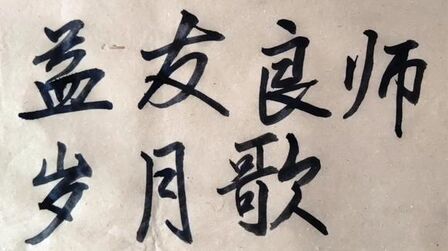 益友良师
岁月歌